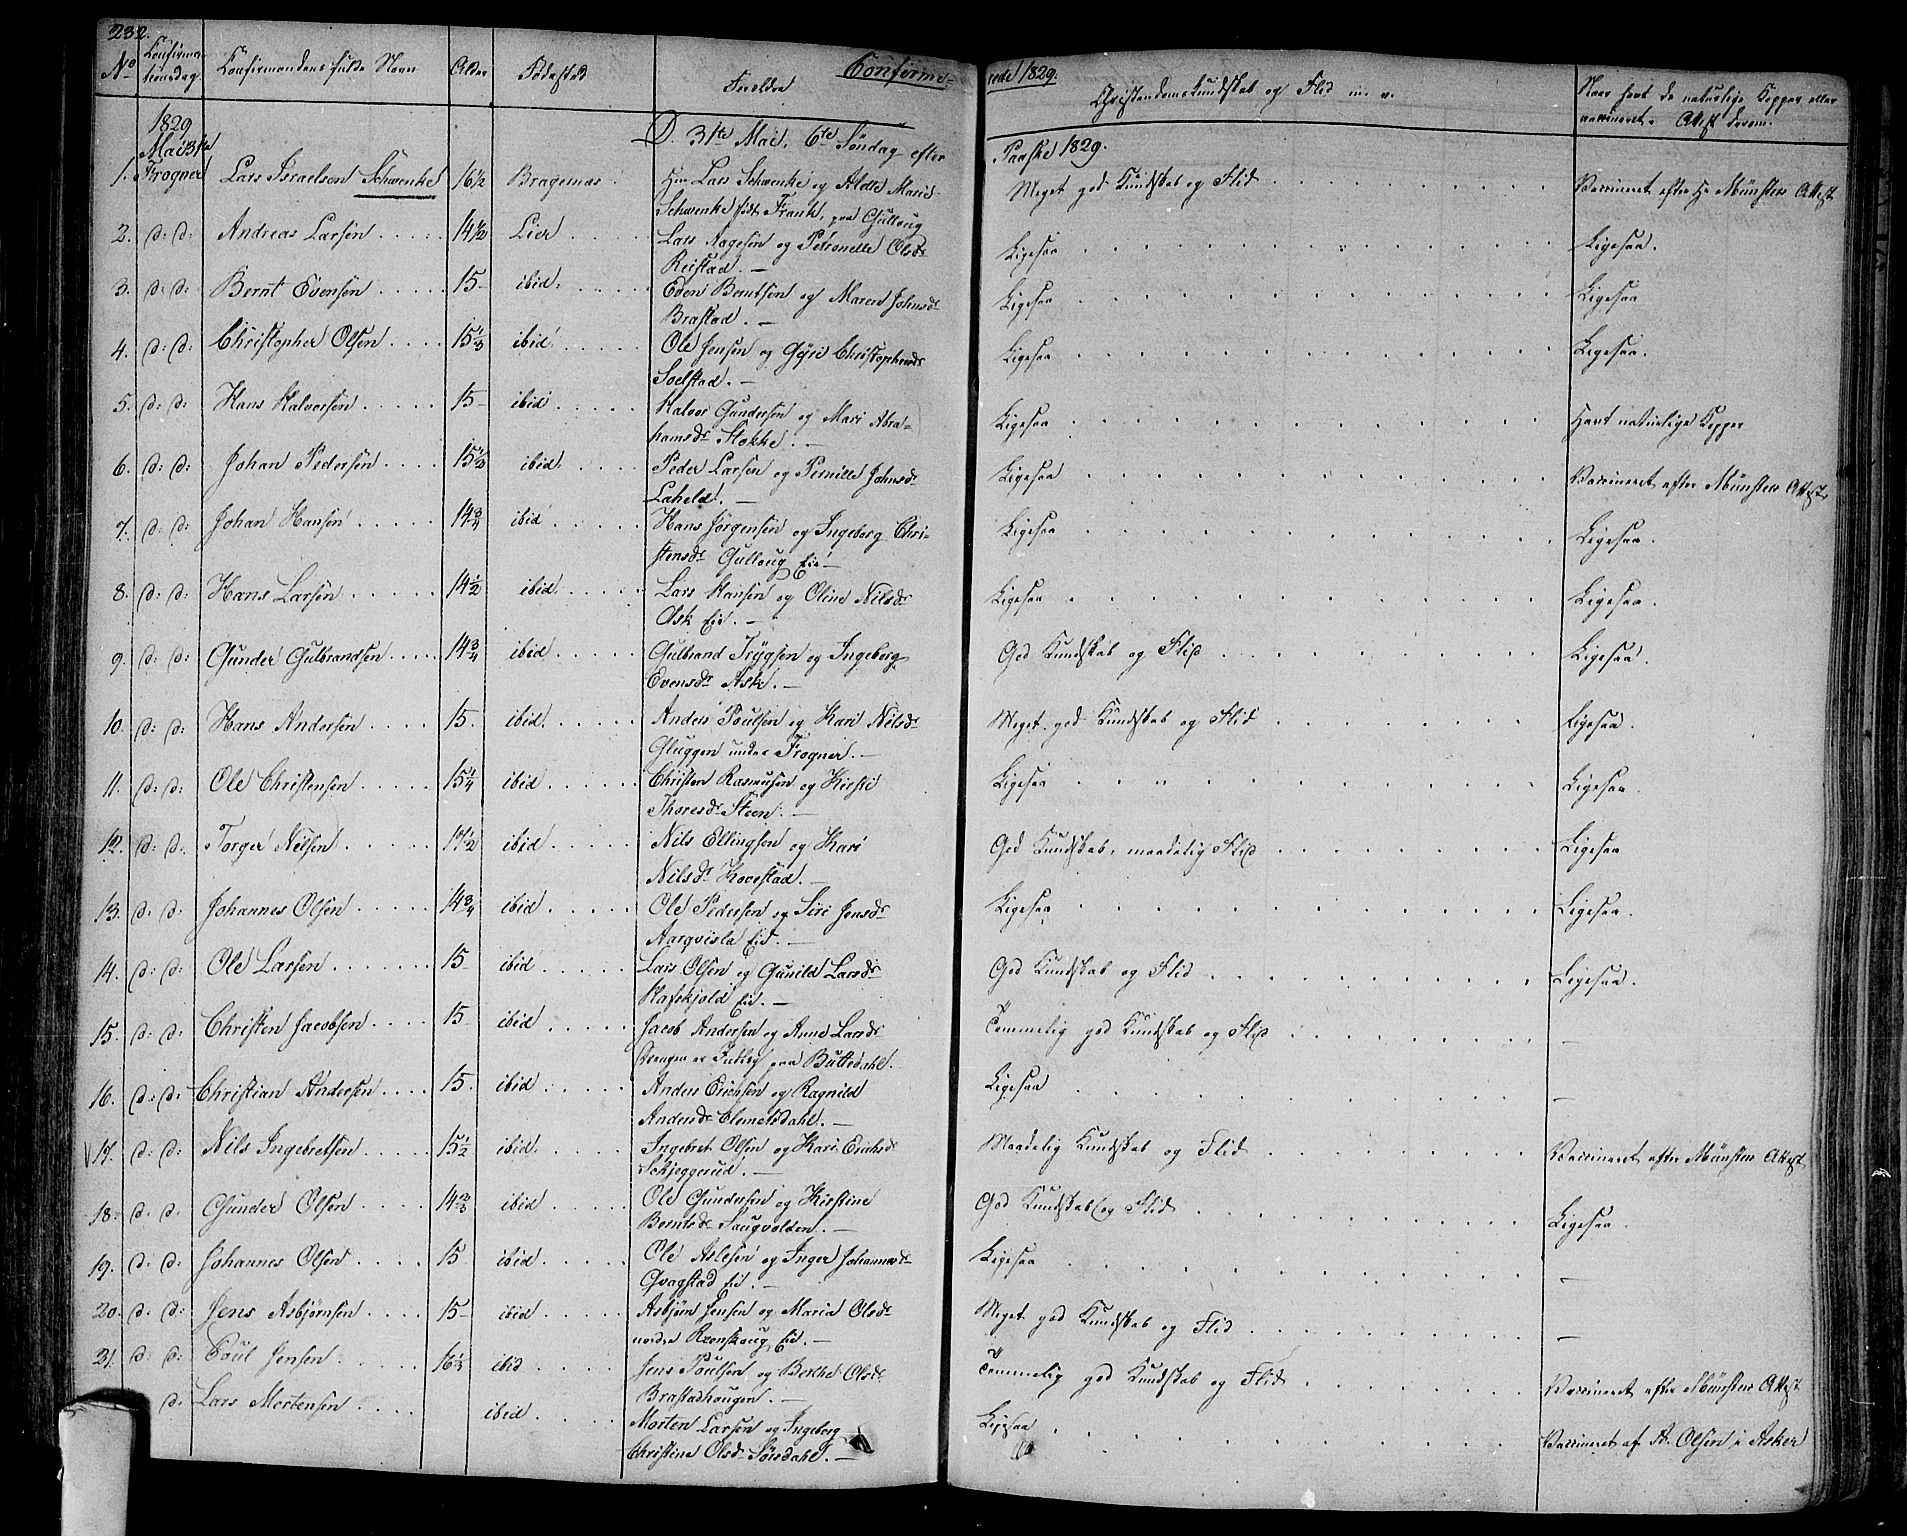 232.
No Confirmationsdag. Confirmandens fulde Navn Alder Fødested Forældre Confirmerede 1829. Christendoms Kundskab og Flid m. v. Naar havt de naturlige Kopper eller
vaccineret. Attest derom.
1829
Mai 31te D. 31te Mai, 6te Søndag efter Paaske 1829.
1. Frogner Lars Israelsen Schwenke 16½ Bragernæs. Hrr Lars Schwenke og Alette Marie Meget god Kundskab og Flid Vaccineret efter Hr Münsters Attest
Schwenke født Frank, paa Gulloug
2. d: d: Andreas Larsen 14½ Lier Lars Aagesen og Petronelle Olsdr Ligesaa Ligesaa.
Reistad. —
3. d: d: Bernt Evensen 15 ibid: Even Berntsen og Maren Johnsdr Ligesaa Ligesaa
Brastad. —
4. d: d: Christopher Olsen 15⅓ ibid: Ole Jensen og Gyri Christophersdr Ligesaa Ligesaa.
Soelstad. —
5. d: d: Hans Halvorsen 15 ibid Halvor Gundersen og Mari Abra- Ligesaa Havt naturlige Kopper
hamsdr Stokke. —
6. d: d: Johan Pedersen 15½ ibid: Peder Larsen og Pernille Johnsdr Ligesaa Vaccineret efter Münsters Attest
Laheld. —
7. d: d: Johan Hansen 14¾ ibid Hans Jørgensen og Ingeborg Chri- Ligesaa Ligesaa.
stensdr Gulloug Eie —
8. d: d: Hans Larsen 14½ ibid Lars Hansen og Oline Nilsdr Ligesaa Ligesaa.
Ask Eie. —
9. d: d: Gunder Gulbrandsen 14¾ ibid Gulbrand Trygsen og Ingeborg God Kundskab og Flid Ligesaa.
Evensdr Ask. —
10. d: d: Hans Andersen 15. ibid. Anders Poulsen og Kari Nilsdr Meget god Kundskab og Flid Ligesaa.
Gluggen under Frogner. —
11. d: d: Ole Christensen 15¼ ibid Christen Rasmusen og Kirsti Ligesaa Ligesaa.
Thoresdr Steen. —
12. d: d: Torger Nilsen 17½ ibid Nils Ellingsen og Kari God Kundskab, maadelig Flid Ligesaa
Nilsdr Hovestad. —
13. d: d: Johannes Olsen 14¾ ibid Ole Pedersen og Siri Jensdr Ligesaa Ligesaa.
Aarqvisla Eie. —
14. d: d: Ole Larsen 15 ibid Lars Olsen og Gunild Larsdr God Kundskab og Flid Ligesaa.
Hafskjold Eie. —
15. d: d: Christen Jacobsen 15 ibid Jacob Andersen og Anne Larsdr Temmelig god Kundskab og Flid —
Drengen er Fultley paa Buttedahl.
16. d: d: Christian Andersen 15. ibid Anders Ericksen og Ragnild Ligesaa —
Andersdr Clemetsdahl. —
17. d: d: Nils Ingebretsen 15½ ibid. Ingebret Olsen og Kari Erichsdr Maadelig Kundskab og Flid Vaccineret efter Münsters Attest
Schjeggerud. —
18. d: d: Gunder Olsen 14⅔ ibid Ole Gundersen og Kirstine God Kundskab og Flid Ligesaa.
Berntsdr Saugvolden. —
19. d: d: Johannes Olsen 15 ibid Ole Aslesen og Inger Johannesdr Ligesaa —
Qvagstad Eie. —
20. d: d: Jens Asbjørnsen 15 ibid Asbjørn Jensen og Maria Olsdr Meget god Kundskab og Flid —
nordre Renskoug Eie. —
21. d: d: Poul Jensen 16⅓ ibid Jens Poulsen og Berthe Olsdr Temmelig god Kundskab og Flid Vaccineret efter Münsters Attest
Brastadhougen. —
d: Lars Mortensen ibid Morten Larsen og Ingeborg Ligesaa Vaccineret af A. Olsen i Asker
Christine Olsdr Sørsdahl. —